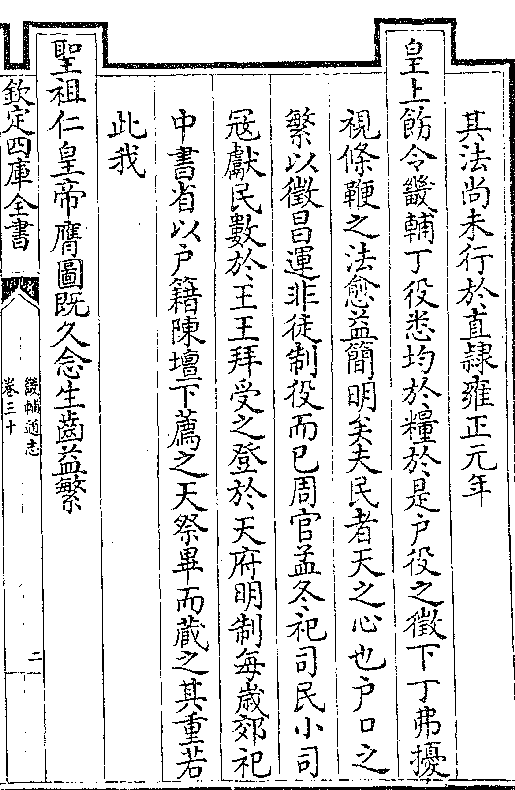 其法尚未行於直隸雍正元年
皇上飭令畿輔丁役悉均於糧於是户役之徵下丁弗擾
視條鞭之法愈益簡明矣夫民者天之心也户口之
繁以徵昌運非徒制役而已周官孟冬祀司民小司
宼獻民數於王王拜受之登於天府明制每歲郊祀
中書省以户籍陳壇下薦之天祭畢而藏之其重若
此我
聖祖仁皇帝膺圖既久念生齒益繁
欽定四庫全書
畿輔通志
卷三十
二